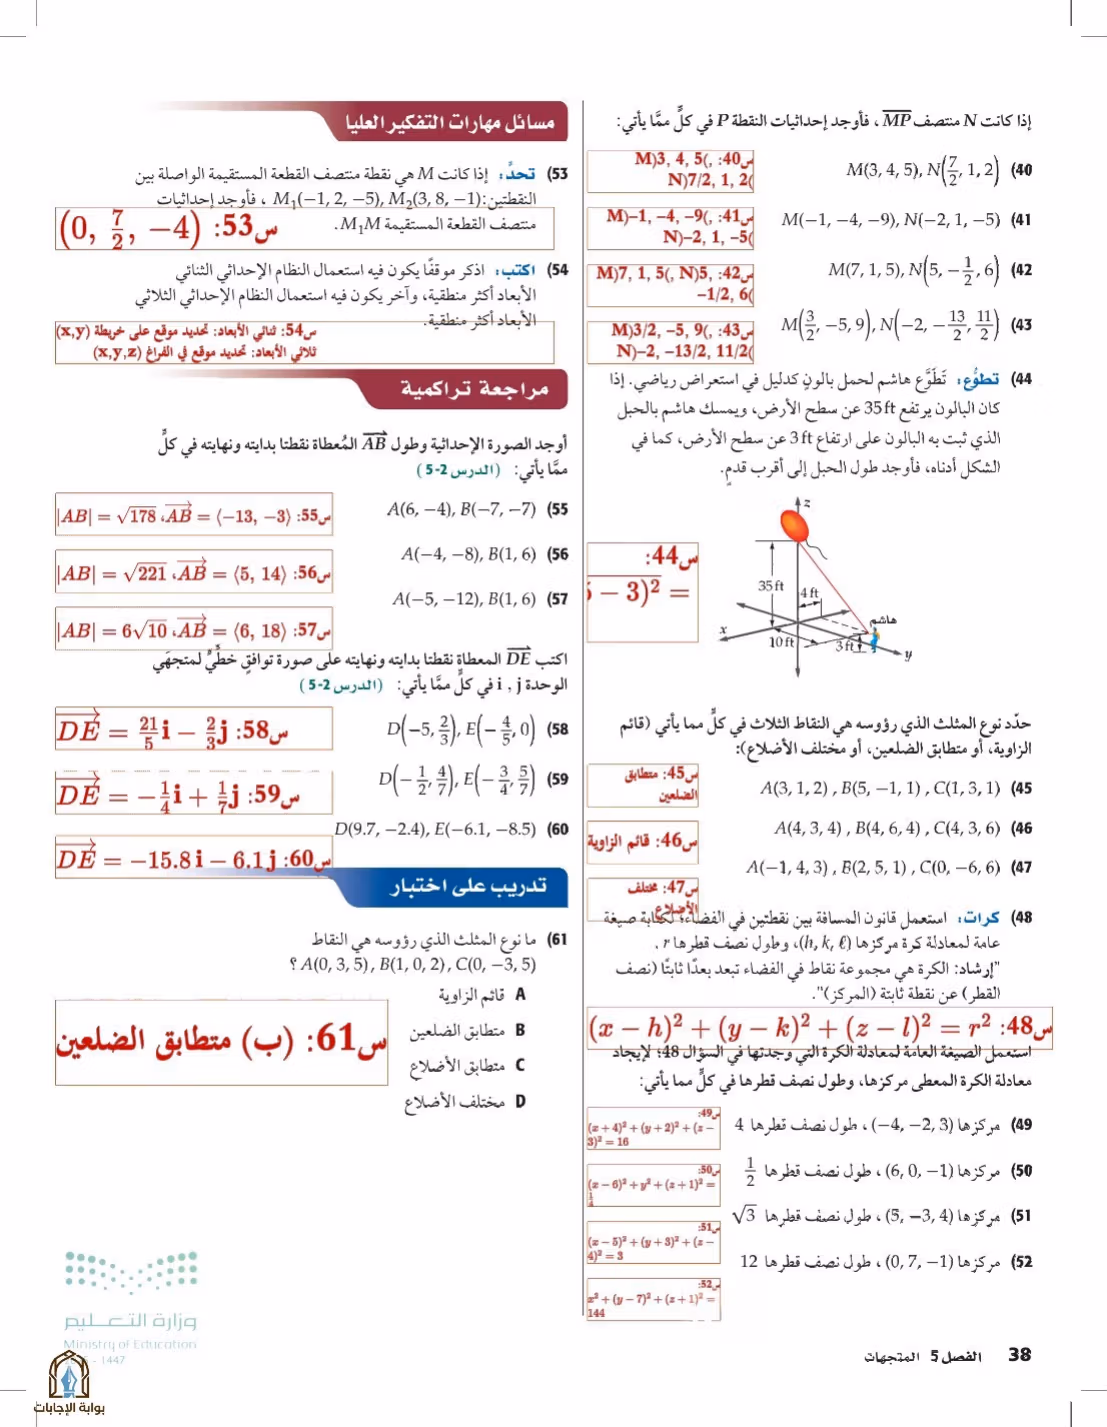 إذا كانت N منتصف MP ، فأوجد إحداثيات النقطة P في كلٍّ ممَّا يأتي:
40) M(3, 4, 5), N(7/2, 1, 2)
س40: ,(M)3, 4, 5
N)7/2, 1, 2(
41) M(−1, −4, −9), N(−2, 1, −5)
س41: ,(M)−1, −4, −9
N)−2, 1, −5(
42) M(7, 1, 5), N(5, −1/2, 6)
س42: ,M)7, 1, 5(, N)5
−1/2, 6(
43) M(3/2, −5, 9), N(−2, −13/2, 11/2)
س43: ,(M)3/2, −5, 9
N)−2, −13/2, 11/2(
44) تطوُّع: تَطَوَّع هاشم لحمل بالونٍ كدليل في استعراض رياضي. إذا
كان البالون يرتفع 35 ft عن سطح الأرض، ويمسك هاشم بالحبل
الذي ثبت به البالون على ارتفاع 3 ft عن سطح الأرض، كما في
الشكل أدناه، فأوجد طول الحبل إلى أقرب قدمٍ.
س44:
− 3)² =
z
35 ft
4 ft
هاشم
x
10 ft
3 ft
y
حدّد نوع المثلث الذي رؤوسه هي النقاط الثلاث في كلٍّ مما يأتي (قائم
الزاوية، أو متطابق الضلعين، أو مختلف الأضلاع):
45) A(3, 1, 2) , B(5, −1, 1) , C(1, 3, 1)
س45: متطابق
الضلعين
46) A(4, 3, 4) , B(4, 6, 4) , C(4, 3, 6)
س46: قائم الزاوية
47) A(−1, 4, 3) , B(2, 5, 1) , C(0, −6, 6)
س47: مختلف
الأضلاع
48) كرات: استعمل قانون المسافة بين نقطتين في الفضاء؛ لكتابة صيغة
عامة لمعادلة كرة مركزها (h, k, ℓ)، وطول نصف قطرها r .
"إرشاد: الكرة هي مجموعة نقاط في الفضاء تبعد بعدًا ثابتًا (نصف
القطر) عن نقطة ثابتة (المركز)".
س48: (x − h)² + (y − k)² + (z − l)² = r²
استعمل الصيغة العامة لمعادلة الكرة التي وجدتها في السؤال 48؛ لإيجاد
معادلة الكرة المعطى مركزها، وطول نصف قطرها في كلٍّ مما يأتي:
49) مركزها (−4, −2, 3) ، طول نصف قطرها 4
س49:
(x + 4)² + (y + 2)² + (z −
3)² = 16
50) مركزها (6, 0, −1) ، طول نصف قطرها 1/2
س50:
(x − 6)² + y² + (z + 1)² =
1/4
51) مركزها (5, −3, 4) ، طول نصف قطرها √3
س51:
(x − 5)² + (y + 3)² + (z −
4)² = 3
52) مركزها (0, 7, −1) ، طول نصف قطرها 12
س52:
x² + (y − 7)² + (z + 1)² =
144
مسائل مهارات التفكير العليا
53) تحدٍّ: إذا كانت M هي نقطة منتصف القطعة المستقيمة الواصلة بين
النقطتين: M₁(−1, 2, −5), M₂(3, 8, −1) ، فأوجد إحداثيات
منتصف القطعة المستقيمة M₁M .
س53: (0, 7/2, −4)
54) اكتب: اذكر موقفًا يكون فيه استعمال النظام الإحداثي الثنائي
الأبعاد أكثر منطقية، وآخر يكون فيه استعمال النظام الإحداثي الثلاثي
الأبعاد أكثر منطقية.
س54: ثنائي الأبعاد: تحديد موقع على خريطة (x,y)
ثلاثي الأبعاد: تحديد موقع في الفراغ (x,y,z)
مراجعة تراكمية
أوجد الصورة الإحداثية وطول AB المُعطاة نقطتا بدايته ونهايته في كلٍّ
ممَّا يأتي: (الدرس 2-5)
55) A(6, −4), B(−7, −7)
س55: AB = ⟨−13, −3⟩، |AB| = √178
56) A(−4, −8), B(1, 6)
س56: AB = ⟨5, 14⟩، |AB| = √221
57) A(−5, −12), B(1, 6)
س57: AB = ⟨6, 18⟩، |AB| = 6√10
اكتب DE المعطاة نقطتا بدايته ونهايته على صورة توافقٍ خطيٍّ لمتجهَي
الوحدة i , j في كلٍّ ممَّا يأتي: (الدرس 2-5)
58) D(−5, 2/3), E(−4/5, 0)
س58: DE = 21/5 i − 2/3 j
59) D(−1/2, 4/7), E(−3/4, 5/7)
س59: DE = −1/4 i + 1/7 j
60) D(9.7, −2.4), E(−6.1, −8.5)
س60: DE = −15.8 i − 6.1 j
تدريب على اختبار
61) ما نوع المثلث الذي رؤوسه هي النقاط
A(0, 3, 5) , B(1, 0, 2) , C(0, −3, 5) ؟
A قائم الزاوية
B متطابق الضلعين
C متطابق الأضلاع
D مختلف الأضلاع
س61: (ب) متطابق الضلعين
وزارة التعليم
Ministry of Education
- 1447
بوابة الإجابات
38 الفصل 5 المتجهات